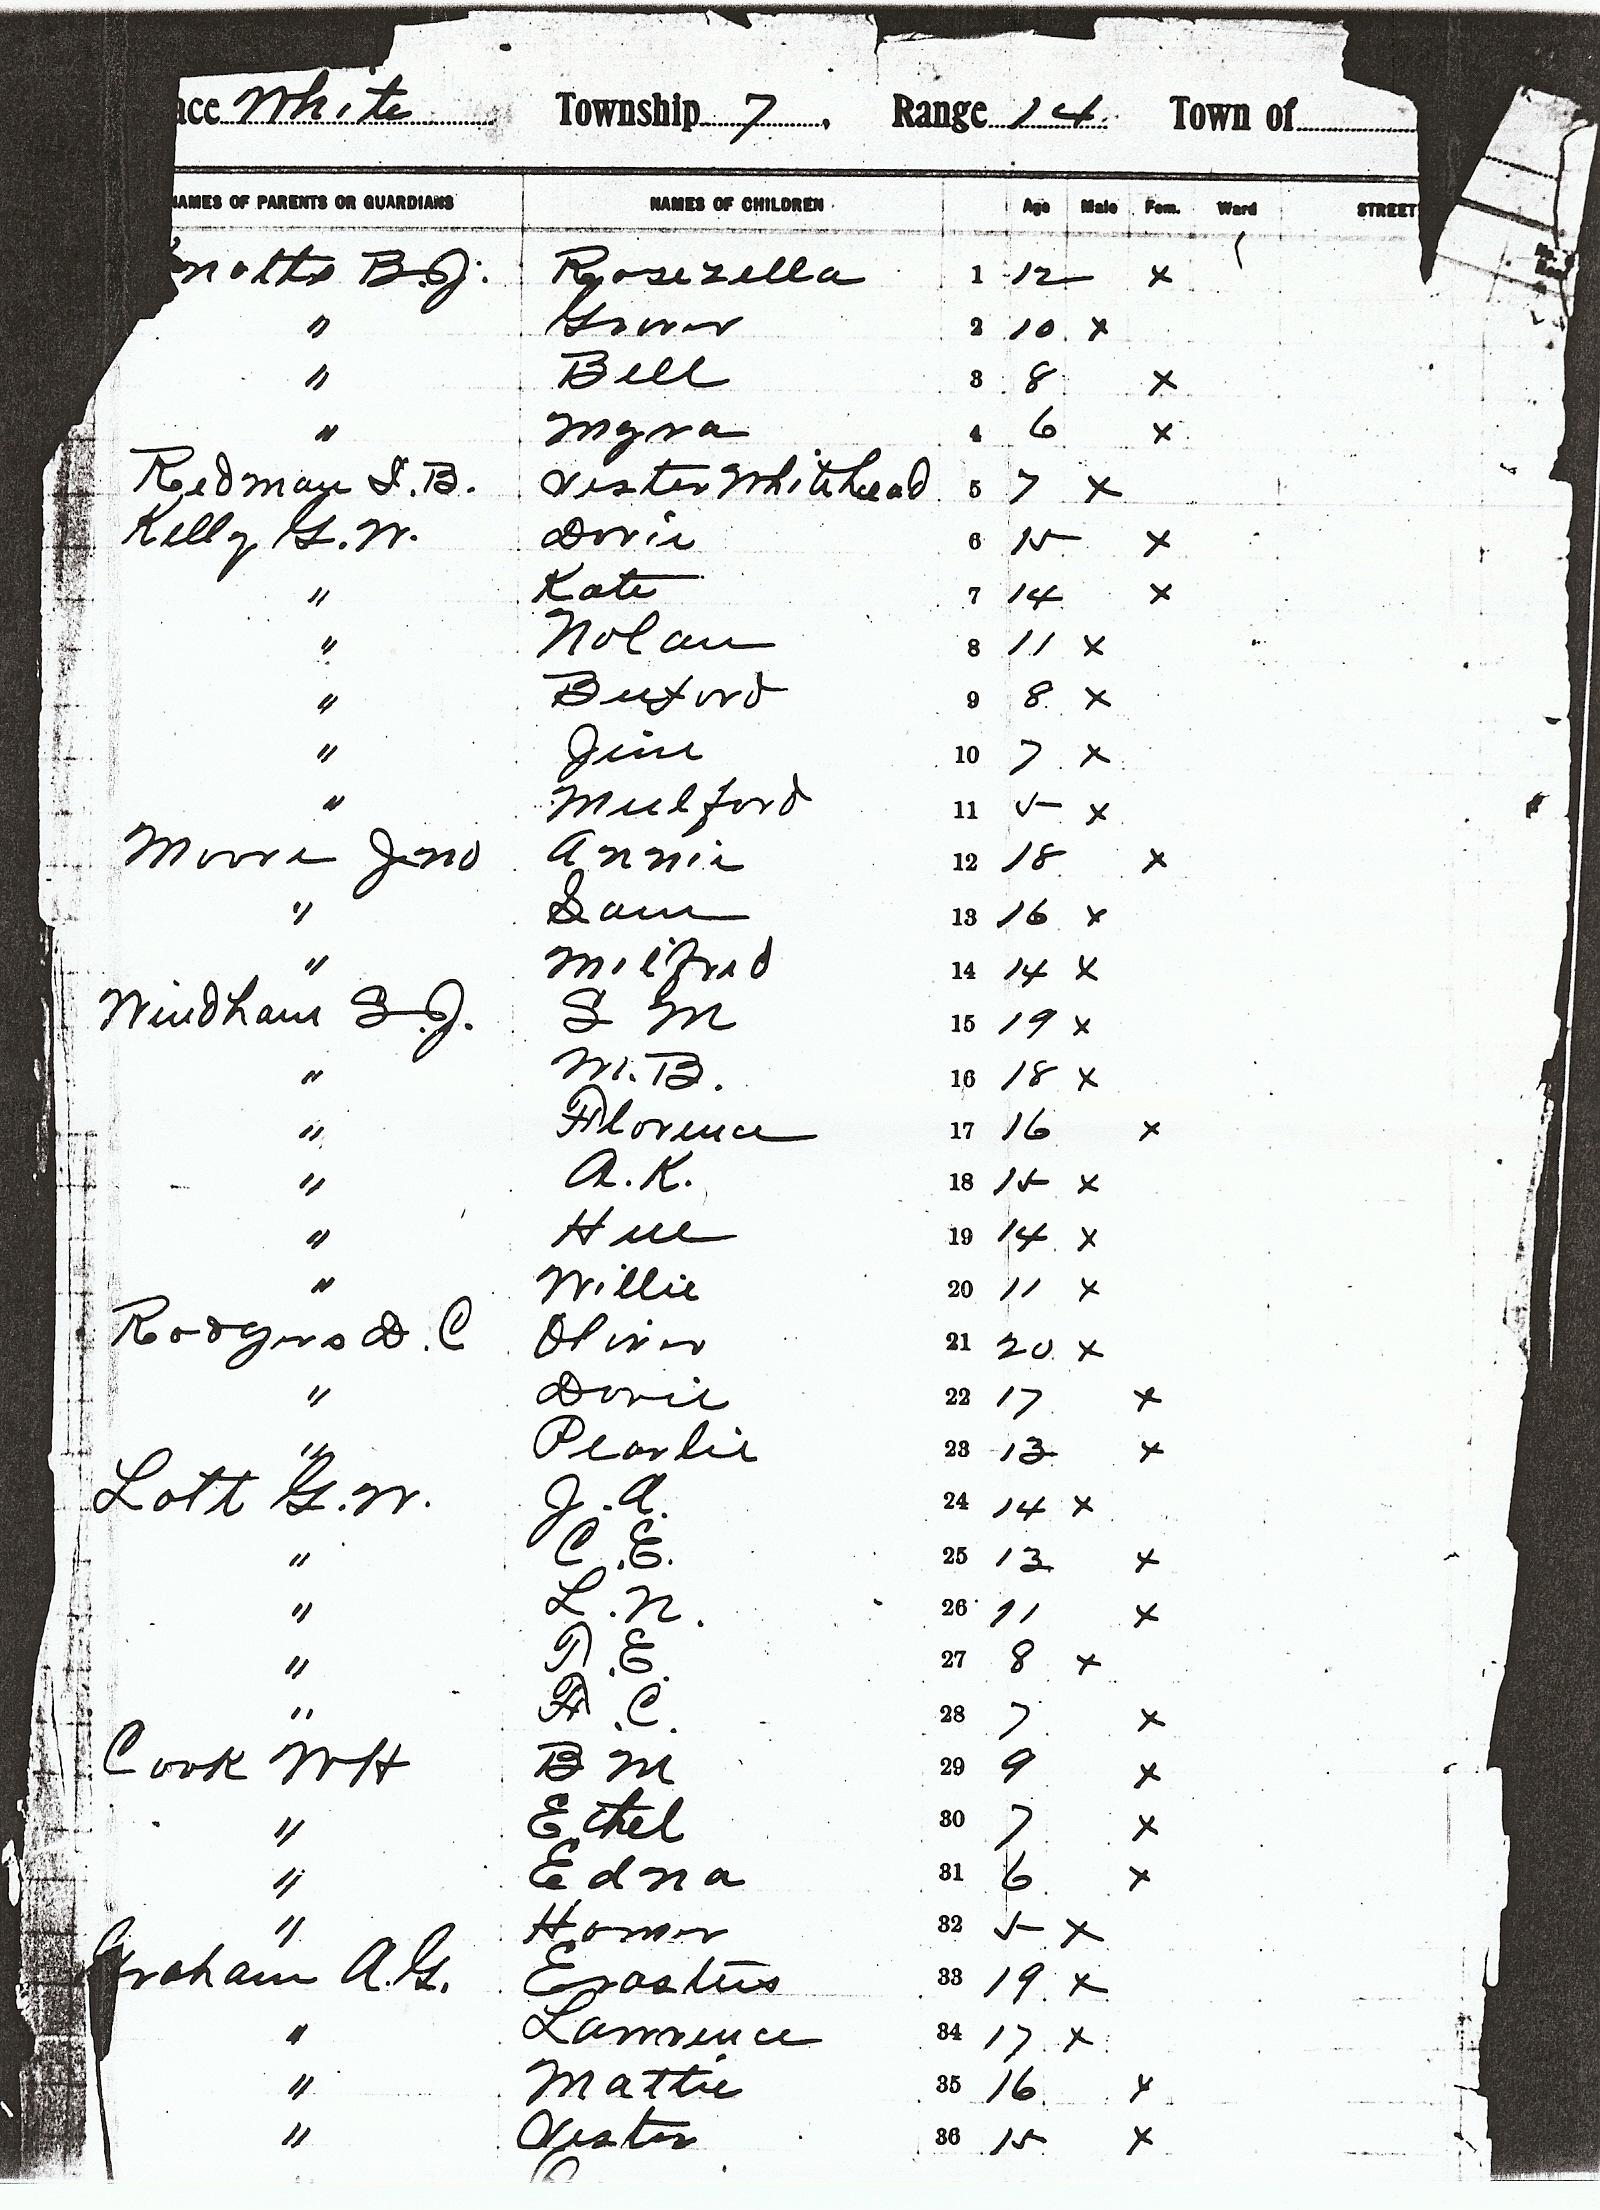 ace White Township 7, Range 14 Town of
NAMES OF PARENTS OR GUARDIANS NAMES OF CHILDREN Age Male Fem. Ward STREET
notts B.J. Rosezella 1 12 x
" Grover 2 10 x
" Bell 3 8 x
" Myra 4 6 x
Redman S.B. Vester Whitehead 5 7 x
Kelly G.W. Dovie 6 15 x
" Kate 7 14 x
" Nolan 8 11 x
" Buford 9 8 x
" Jim 10 7 x
" Mulford 11 5 x
Moore Jno Annie 12 18 x
" Sam 13 16 x
" Milfred 14 14 x
Windham S.J. S M 15 19 x
" M.B. 16 18 x
" Florence 17 16 x
" A.K. 18 15 x
" Hue 19 14 x
" Willie 20 11 x
Rodgers D.C Oliver 21 20 x
" Dovie 22 17 x
" Pearlie 23 13 x
Lott G.W. J.A. 24 14 x
" C.E. 25 13 x
" L.N. 26 11 x
" T.E. 27 8 x
" F.C. 28 7 x
Cook WH B M 29 9 x
" Ethel 30 7 x
" Edna 31 6 x
" Homer 32 5 x
Graham A.G. Erastus 33 19 x
" Lawrence 34 17 x
" Mattie 35 16 x
" Vester 36 15 x